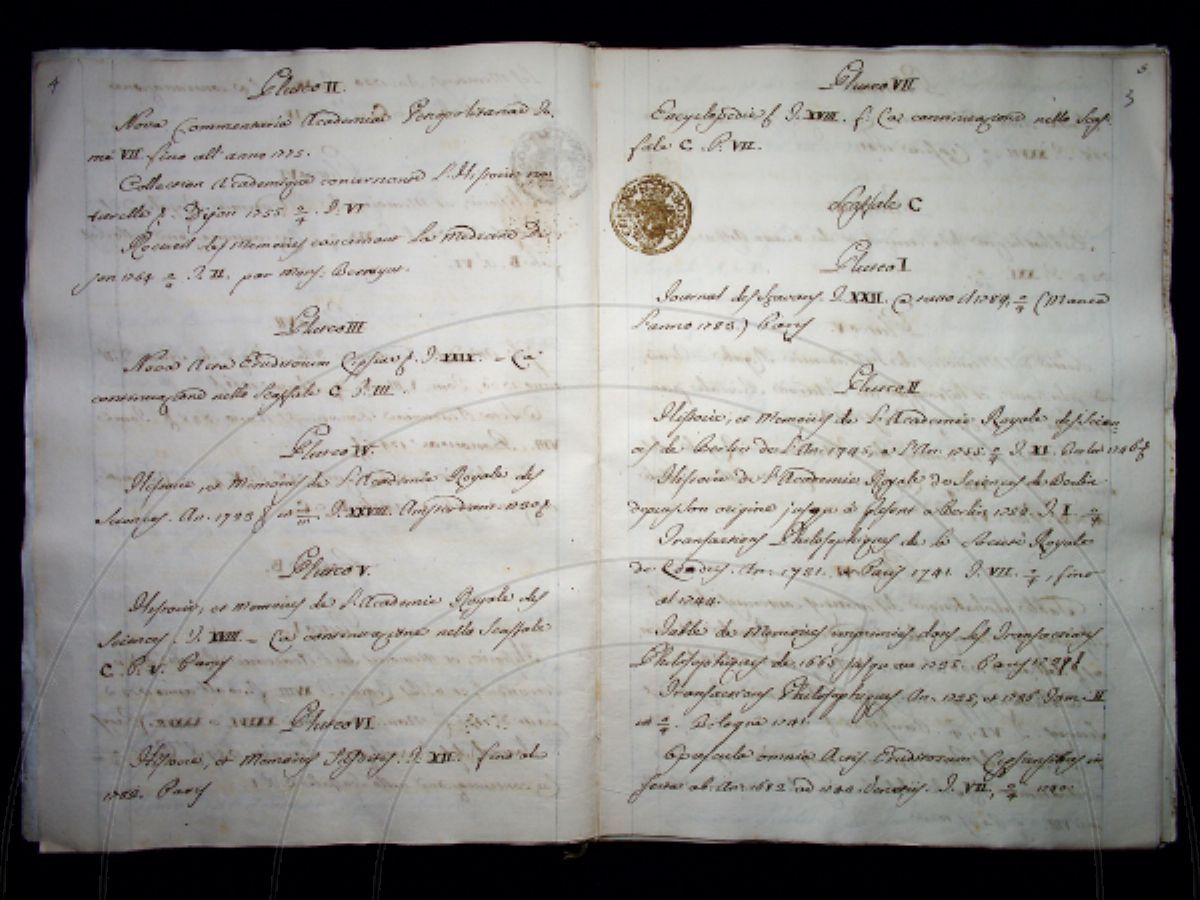 4
Pluteo II.
Nova Commentaria Academiae Petropolitanae To.
me VII. fino all' anno 1775.
Collection Academique concernant L'Histoire na-
turelle f. Dijon 1755 2/4. T. VI
Recueil des Memoires concernant La Medecine Di-
jon 1764 T. II. par Mons. Berryat.
Pluteo III
Nova Acta Eruditorum Lipsiae f. T. XXIX. - La
continuazione nello Scaffale C. P. III.
Pluteo IV.
Histoire, et Memoires de L'Academie Royale des
Sciences. An. 1743 in T. XXVIII. Amsterdam.
Pluteo V.
Histoire, et Memoires de L'Academie Royale des
Sciences. T. XVIII - La continuazione nello Scaffale
C. P. V. Paris
Pluteo VI.
Histoire, et Memoires T. XII. fino al
1782. Paris
5
3
Pluteo VII
Encyclopedie f. T. XVIII. f. La continuazione nello Scaf-
fale C. P. VII.
Scaffale C
Pluteo I.
Journal des Sçavans. T. XXII. La 1784. 2/4 (Manca
l'anno 1783.) Paris
Pluteo II
Histoire, et Memoires de L'Academie Royale des Scien-
ces de Berlin de L'An. 1745, a L'An. 1755 2/4 T. XI. Berlin 1746
Histoire de L'Academie Royale de Sciences de Berlin
depuis son origine jusqu'à present a Berlin T. I. 2/4
Transactions Philosophiques de la Societé Royale
de Londres. An. 1731. Paris 1741. T. VII. 2/4, fino
al 1744.
Table de Memoires imprimés dans les Transactions
Philosophiques de 1665 jusqu'au 1735. Paris
Transactions Philosophiques An. 1735, et 1736 Tom. II
in 2/4. Bologne 1741.
Opuscula omnia Actis Eruditorum Lipsiensibus in
serta ab An. 1682 ad 1740. Venetiis. T. VII, 2/4 1740.